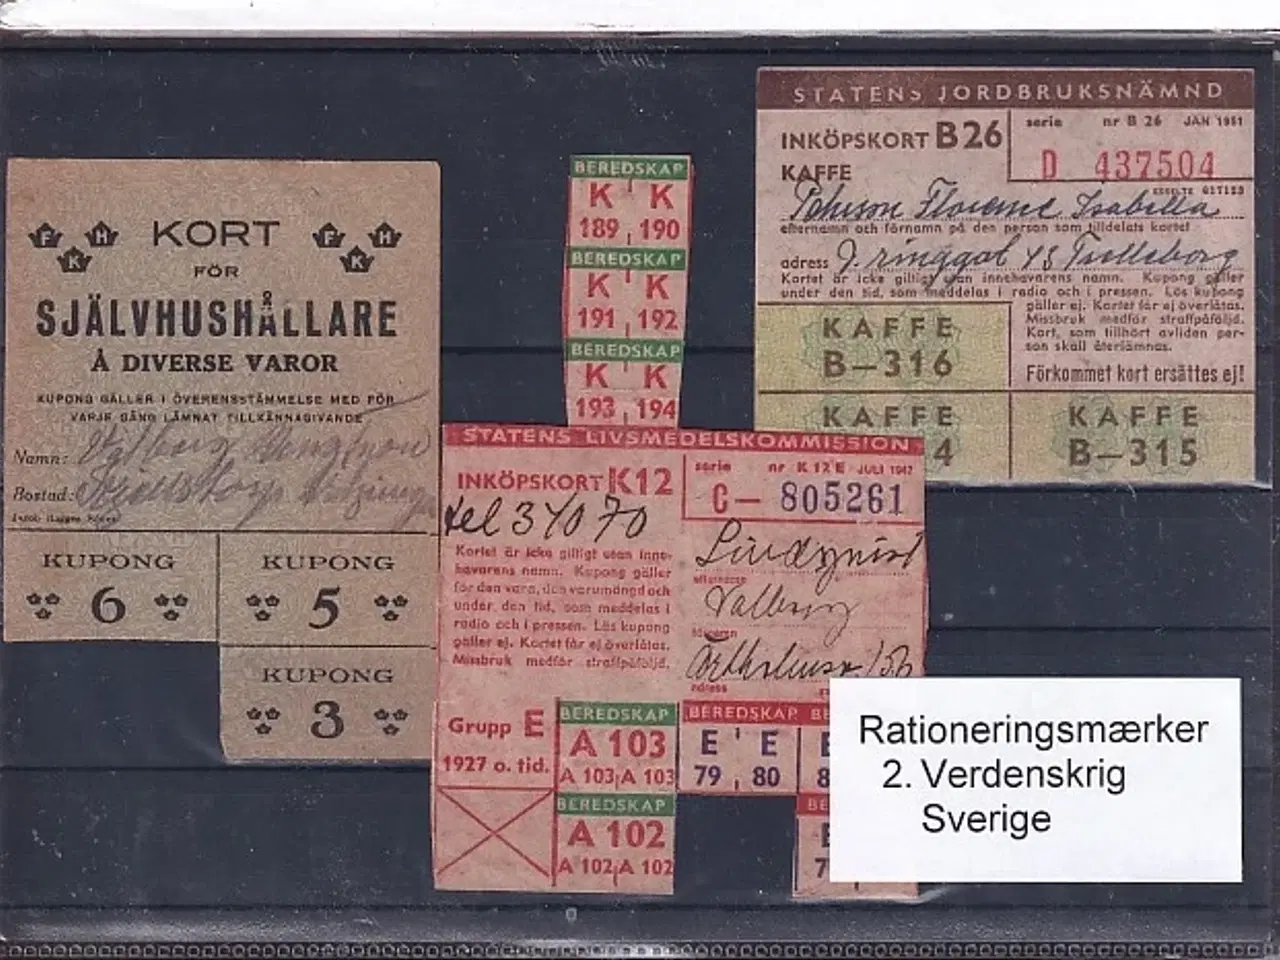 KORT
FÖR
SJÄLVHUSHÅLLARE
Å DIVERSE VAROR
KUPONG GÄLLER I ÖVERENSSTÄMMELSE MED FÖR
VARJE GÅNG LÄMNAT TILLKÄNNAGIVANDE
Namn:
Bostad:
KUPONG
6
KUPONG
5
KUPONG
3
F H K
F H K
BEREDSKAP
K K
189 190
BEREDSKAP
K K
191 192
BEREDSKAP
K K
193 194
STATENS JORDBRUKSNÄMND
INKÖPSKORT B 26
KAFFE
serie nr B 26 JAN 1951
D 437504
Florence Isabella
efternamn och förnamn på den person som tilldelats kortet
adress
Kortet är icke giltigt utan innehavarens namn. Kupong gäller
under den tid, som meddelas i radio och i pressen. Lös kupong
gäller ej. Kortet får ej överlåtas.
Missbruk medför straffpåföljd.
Kort, som tillhört avliden per-
son skall återlämnas.
Förkommet kort ersättes ej!
KAFFE
B—316
KAFFE
4
KAFFE
B—315
STATENS LIVSMEDELSKOMMISSION
INKÖPSKORT K12
serie nr K 12 E JULI 1947
C— 805261
tel 34070
Kortet är icke giltigt utan inne-
havarens namn. Kupong gäller
för den vara, den varumängd och
under den tid, som meddelas i
radio och i pressen. Lös kupong
gäller ej. Kortet får ej överlåtas.
Missbruk medför straffpåföljd.
Lindqvist
efternamn
Valborg
förnamn
adress
Grupp E
1927 o. tid.
BEREDSKAP
A 103
A 103 A 103
BEREDSKAP
A 102
A 102 A 102
BEREDSKAP BE
E E E
79 80 8
BE
E
7
Rationeringsmærker
2. Verdenskrig
Sverige